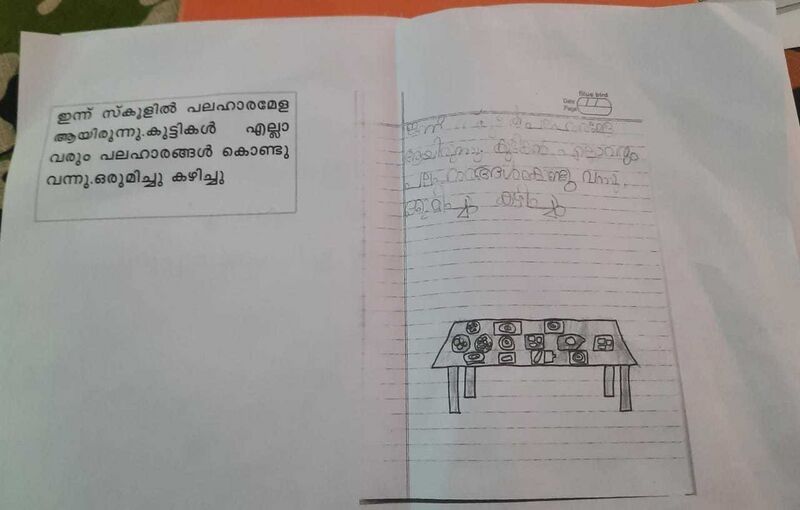 ഇന്ന് സ്കൂളിൽ പലഹാരമേള
ആയിരുന്നു.കുട്ടികൾ എല്ലാ
വരും പലഹാരങ്ങൾ കൊണ്ടു
വന്നു.ഒരുമിച്ചു കഴിച്ചു
Blue bird
Date
Page
ഇന്ന്
ആയിരുന്നു കുട്ടികൾ എലാവരും
പലഹാരങ്ങൾകൊണ്ടു വന്നു.
കഴിച്ചു